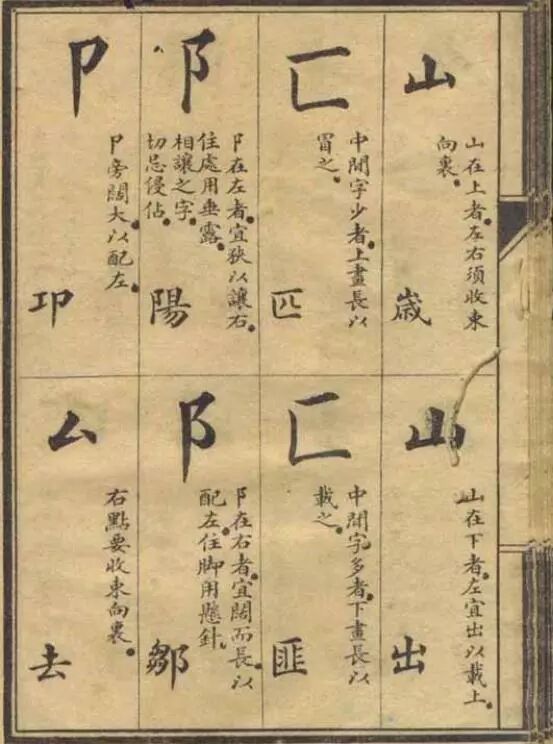 山
山在上者。左右須收束
向裏。
嵗
匚
中間字少者。上畫長以
冐之。
匹
阝
阝在左者。宜狹以讓右。
住處用垂露。
相讓之字。
切忌侵佔。
陽
卩
卩旁闊大。以配左。
卭
山
山在下者。左宜出以載上。
出
匚
中間字多者。下畫長以
載之。
匪
阝
阝在右者。宜闊而長。以
配左。住脚用懸針。
鄒
厶
右點要收束向裏。
去